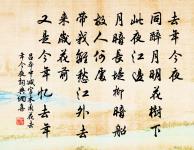 去年今夜
同醉月明花樹下
此夜江邊
月暗長堤柳暗船
故人何處
帶我離愁江外去
來歲花前
又是今年憶去年
呂本中減字木蘭花去
年今夜詞典網書